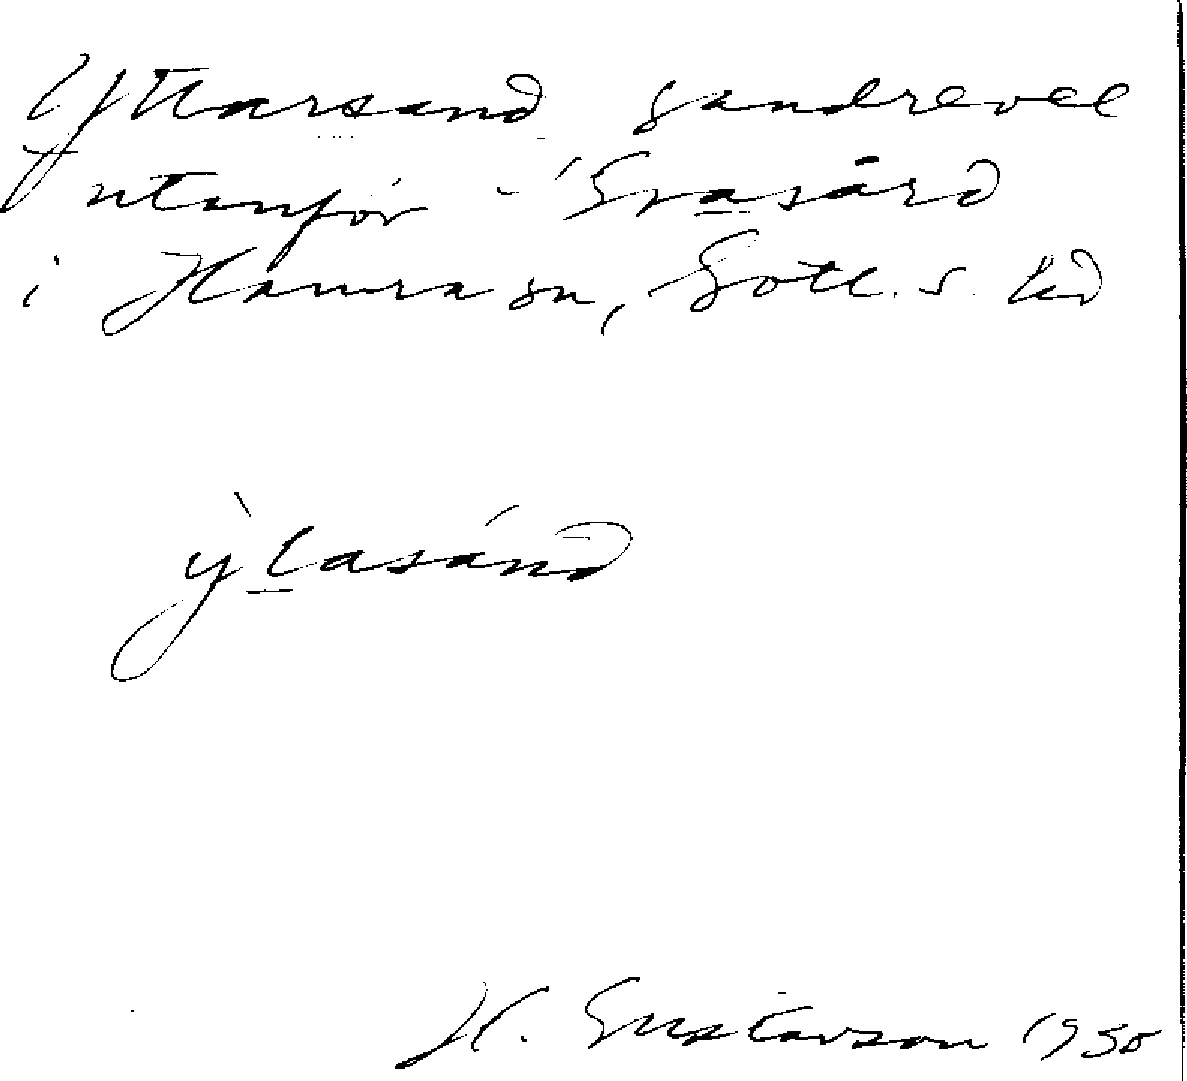 Yttarsand sandrevel
utanför Grasård
i Hamra sn, Gotl. S. hd
ỳtasánd
H. Gustavson 1950